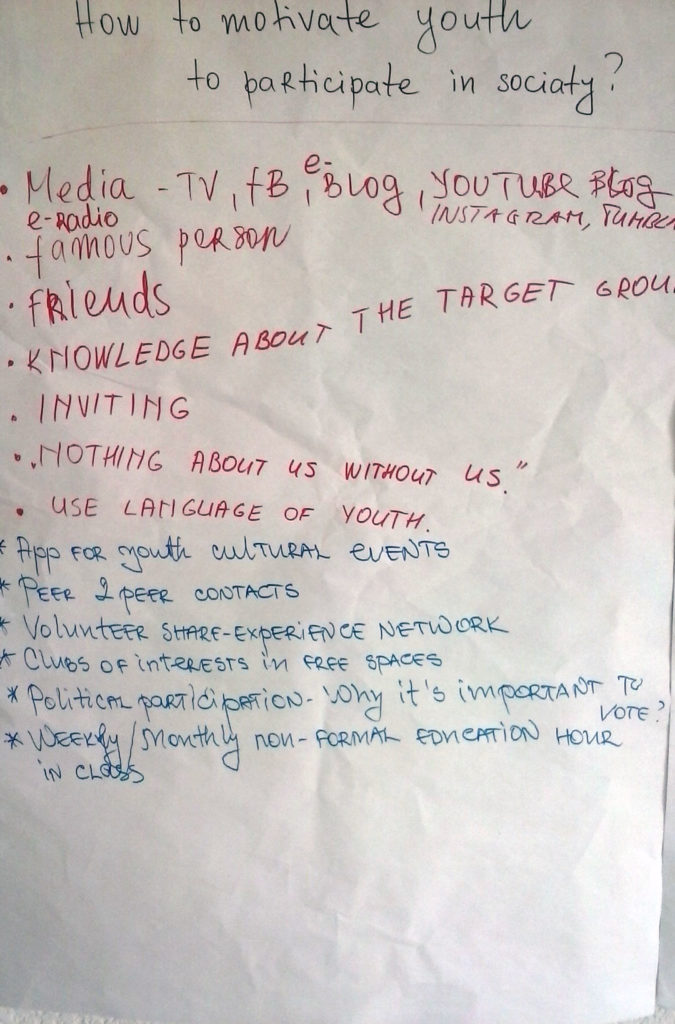 How to motivate youth
to participate in sociaty?
• Media - TV, fB, e-Blog, YOUTUBE Blog
e-RADIO INSTAGRAM, TUMBLR
• famous person
• fRiends
• KNOWLEDGE ABOUT THE TARGET GROU
• INVITING
• „NOTHING ABOUT US WITHOUT US."
• USE LANGUAGE OF YOUTH.
* App FOR youth CULTURAL EVENTS
* PEER 2 PEER CONTACTS
* VOLUNTEER SHARE-EXPERIENCE NETWORK
* CLUBS OF INTERESTS IN FREE SPACES
* Political participation - Why it's important TO
VOTE?
* WEEKLY/Monthly non-FORMAL EDUCATION HOUR
IN CLASS